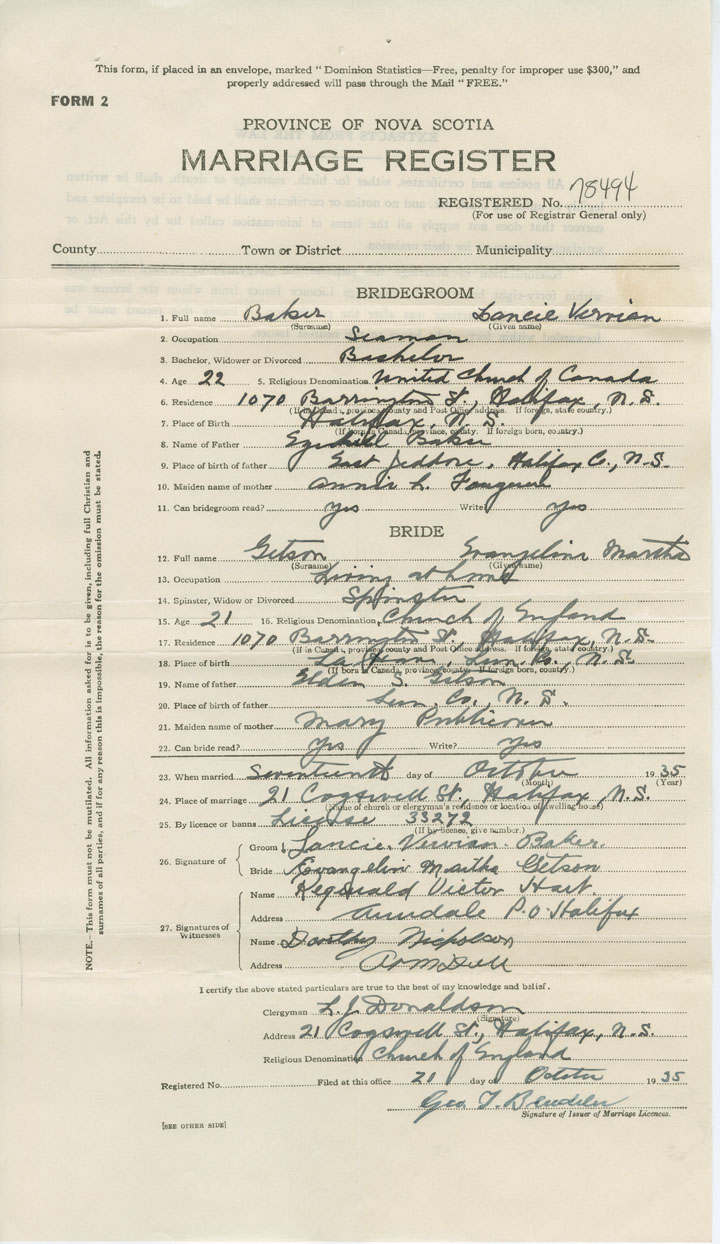 This form, if placed in an envelope, marked " Dominion Statistics—Free, penalty for improper use $300," and
properly addressed will pass through the Mail "FREE."
FORM 2
PROVINCE OF NOVA SCOTIA
MARRIAGE REGISTER
REGISTERED No. 78494
(For use of Registrar General only)
County Town or District Municipality
BRIDEGROOM
1. Full name Baker Lancie Vervian
(Surname) (Given name)
2. Occupation Seaman
3. Bachelor, Widower or Divorced Bachelor
4. Age 22 5. Religious Denomination United Church of Canada
6. Residence 1070 Barrington St., Halifax, N.S.
(If in Canada, province, county and Post Office address. If foreign, state country.)
7. Place of Birth Halifax, N.S.
(If born in Canada, province, county. If foreign born, country.)
8. Name of Father Ezekiel Baker
9. Place of birth of father East Jeddore, Halifax Co., N.S.
10. Maiden name of mother Annie L.
11. Can bridegroom read? Yes Write? Yes
BRIDE
12. Full name Getson Evangeline Martha
(Surname) (Given name)
13. Occupation Living at home
14. Spinster, Widow or Divorced Spinster
15. Age 21 16. Religious Denomination Church of England
17. Residence 1070 Barrington St., Halifax, N.S.
(If in Canada, province, county and Post Office address. If foreign, state country.)
18. Place of birth Lun. Co., N.S.
(If born in Canada, province, county. If foreign born, country.)
19. Name of father Elden S. Getson
20. Place of birth of father Lun. Co., N.S.
21. Maiden name of mother Mary
22. Can bride read? Yes Write? Yes
23. When married Seventeenth day of October 1935
(Month) (Year)
24. Place of marriage 21 Cogswell St., Halifax, N.S.
(Name of church or clergyman's residence or location of dwelling house)
25. By licence or banns License 33272
(If by licence, give number.)
26. Signature of
Groom Lancie Vervian Baker.
Bride Evangeline Martha Getson
27. Signatures of Witnesses
Name Reginald Victor Hart.
Address Armdale P.O. Halifax
Name Dorothy Nicholson
Address Armdale
I certify the above stated particulars are true to the best of my knowledge and belief.
Clergyman L. J. Donaldson
(Signature)
Address 21 Cogswell St., Halifax, N.S.
Religious Denomination Church of England
Registered No. Filed at this office 21 day of October 1935
Geo. T.
Signature of Issuer of Marriage Licences.
[SEE OTHER SIDE]
NOTE.—This form must not be mutilated. All information asked for is to be given, including full Christian and
surnames of all parties, and if for any reason this is impossible, the reason for the omission must be stated.